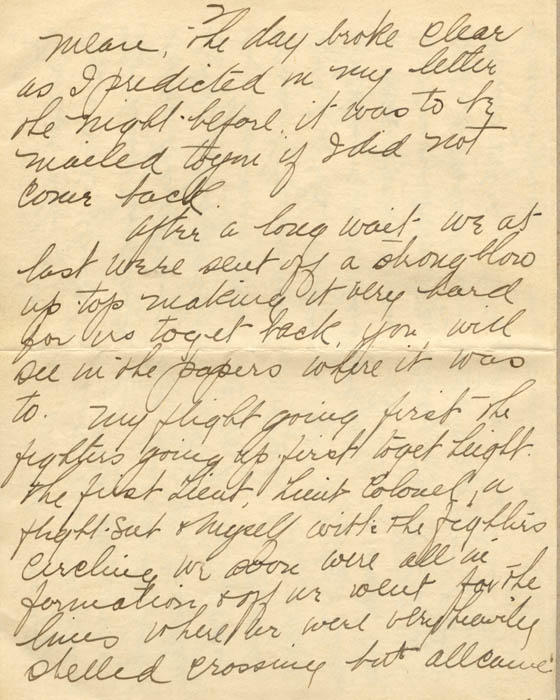 mean, The day broke clear
as I predicted in my letter
the night before, it was to be
mailed to you if I did not
come back.
After a long wait, we at
last were sent off a strong blow
up top making it very hard
for us to get back, you will
see in the papers where it was
to. My flight going first the
fighters going up first to get height.
The first Lieut, Lieut Colonel, a
flight Sut & myself with the fighters
circling, we soon were all in
formation & off we went for the
lines where we were very heavily
shelled crossing but all came